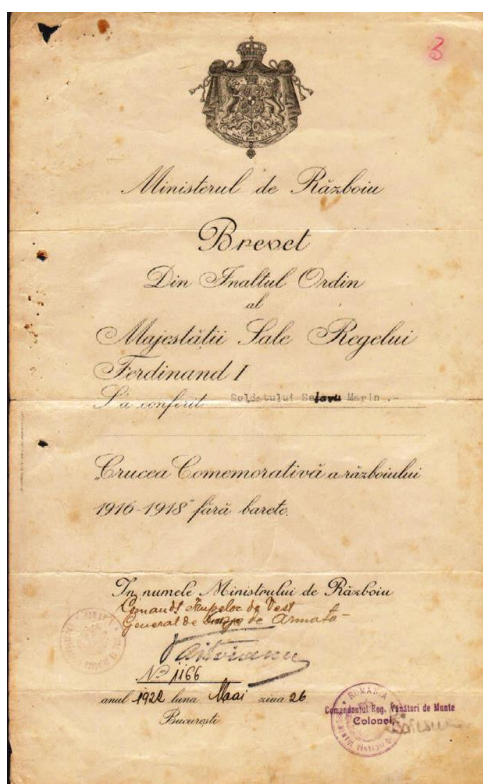 3
Ministerul de Războiu
Brevet
Din Inaltul Ordin
al
Majestății Sale Regelui
Ferdinand I
S'a conferit Soldatului Marin.-
Crucea Comemorativă a războiului
1916-1918" fără barete.
In numele Ministrului de Războiu
Comandt Trupelor de Vest
General de de Armată-
No 1166
anul 1922 luna Mai ziua 26
București
ROMANIA
Comandantul Reg. Vânători de Munte
Colonel,